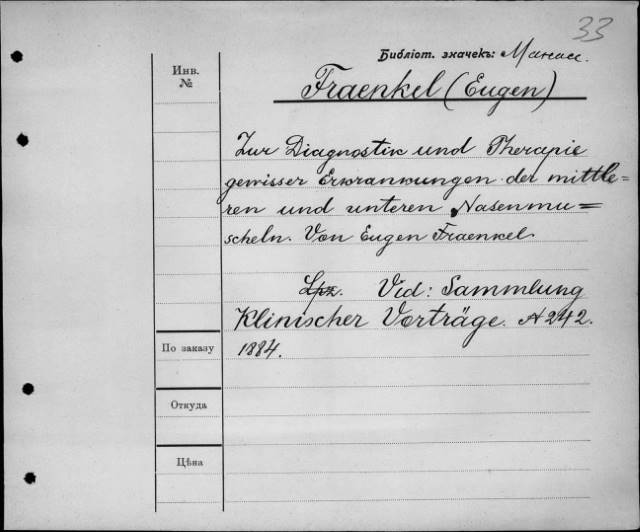 33
Библіот. значекъ: Манас.
Инв.
№
Fraenkel (Eugen)
Zur Diagnostik und Therapie
gewisser Erkrankungen der mittle=
ren und unteren Nasenmu=
scheln. Von Eugen Fraenkel.
Lpz. Vid: Sammlung
Klinischer Vorträge. № 242.
По заказу
1884.
Откуда
Цѣна